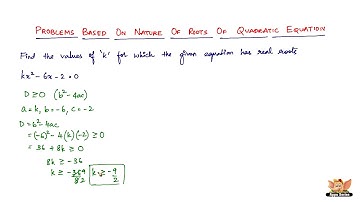 PROBLEMS BASED ON NATURE OF ROOTS OF QUADRATIC EQUATION
Find the values of 'k' for which the given equation has real roots
kx² - 6x - 2 = 0
D ≥ 0 (b² - 4ac)
a = k, b = -6, c = -2
D = b² - 4ac
= (-6)² - 4(k)(-2) ≥ 0
= 36 + 8k ≥ 0
8k ≥ -36
k ≥ -36 9 / 8 2 k ≥ -9/2